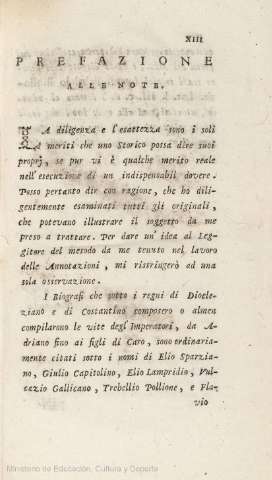 XIII
PREFAZIONE
ALLE NOTE.
LA diligenza e l'esattezza sono i soli
meriti che uno Storico possa dire suoi
proprj, se pur vi è qualche merito reale
nell'esecuzione di un indispensabil dovere.
Posso pertanto dir con ragione, che ho dili-
gentemente esaminati tutti gli originali,
che potevano illustrare il soggetto da me
preso a trattare. Per dare un'idea al Leg-
gitore del metodo da me tenuto nel lavoro
delle Annotazioni, mi ristringerò ad una
sola osservazione.
I Biografi che sotto i regni di Diocle-
ziano e di Costantino composero o almen
compilarono le vite degl'Imperatori, da A-
driano fino ai figli di Caro, sono ordinaria-
mente citati sotto i nomi di Elio Sparzia-
no, Giulio Capitolino, Elio Lampridio, Vul-
cazio Gallicano, Trebellio Pollione, e Fla-
vio
Ministerio de Educación, Cultura y Deporte